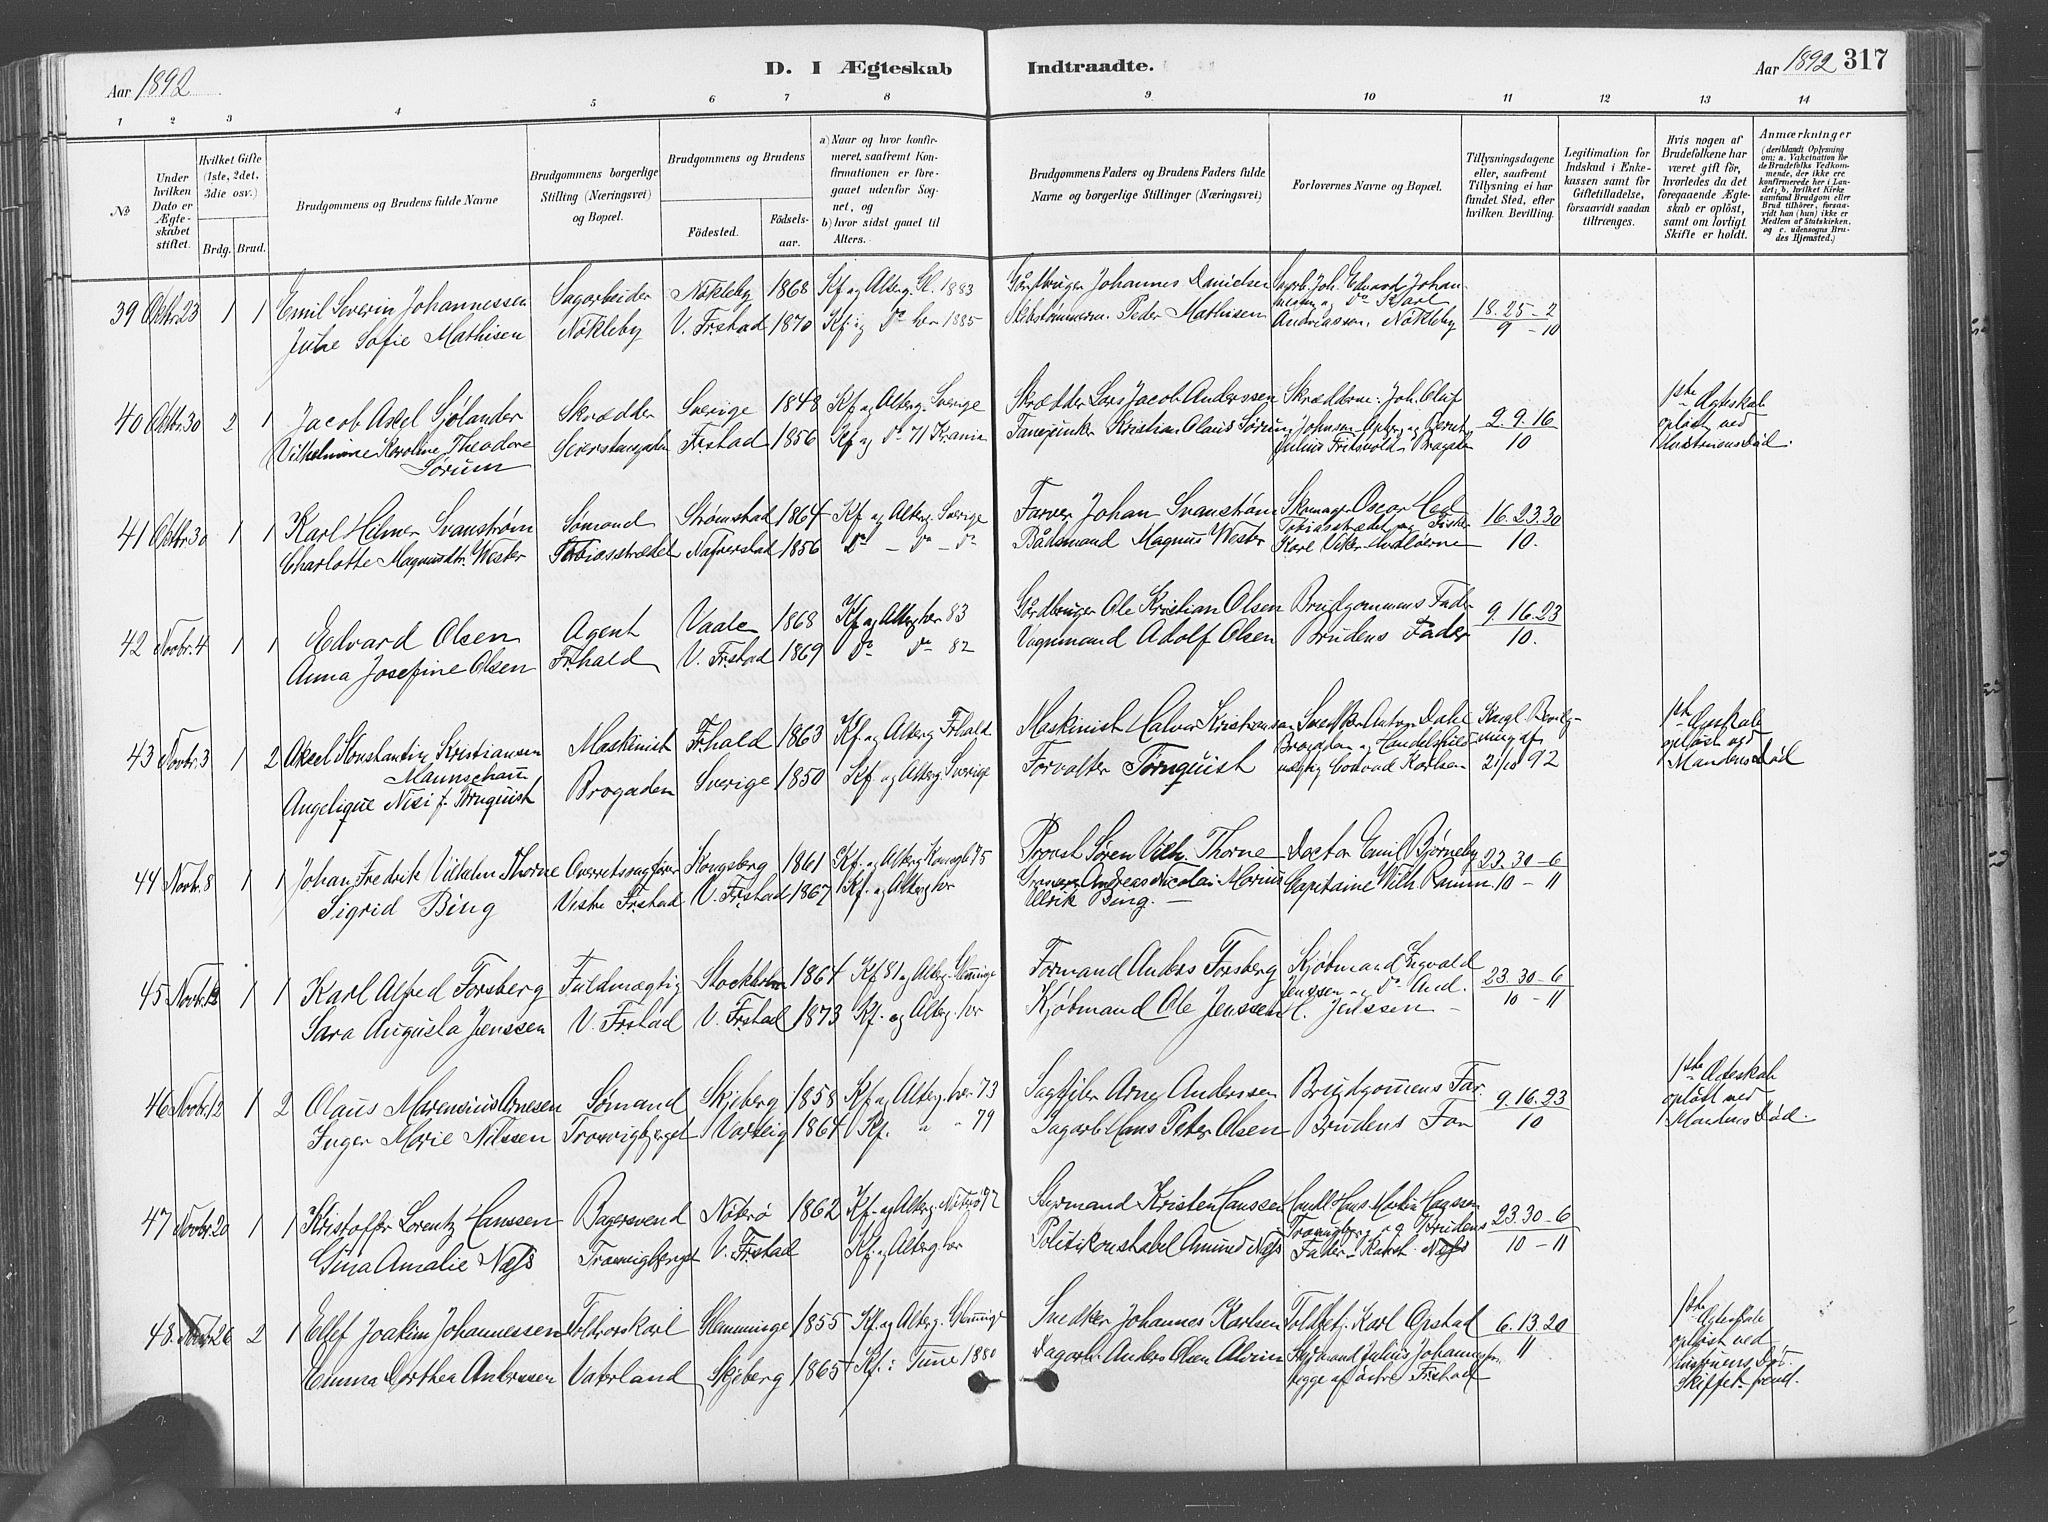 Aar 1892
D. I Ægteskab
Indtraadte.
Aar 1892 317
1 2 3 4 5 6 7 8 9 10 11 12 13 14
No
Under hvilken Dato er Ægteskabet stiftet.
Hvilket Gifte (1ste, 2det, 3die osv.)
Brdg. Brud.
Brudgommens og Brudens fulde Navne
Brudgommens borgerlige Stilling (Næringsvei) og Bopæl.
Brudgommens og Brudens
Fødested.
Fødselsaar.
a) Naar og hvor konfirmeret, saafremt Konfirmationen er foregaaet udenfor Sognet, og
b) hvor sidst gaaet til Alters.
Brudgommens Faders og Brudens Faders fulde Navne og borgerlige Stillinger (Næringsvei)
Forlovernes Navne og Bopæl.
Tillysningsdagene eller, saafremt Tillysning ei har fundet Sted, efter hvilken Bevilling.
Legitimation for Indskud i Enkekassen samt for Giftetilladelse, forsaavidt saadan tiltrænges.
Hvis nogen af Brudefolkene har været gift før, hvorledes da det foregaaende Ægteskab er opløst, samt om lovligt Skifte er holdt.
Anmærkninger (deriblandt Oplysning om: a. Vakcination for de Brudefolks Vedkommende, der ikke ere konfirmerede her i Landet; b. hvilket Kirkesamfund Brudgom eller Brud tilhører, forsaavidt han (hun) ikke er Medlem af Statskirken, og c. udensogns Brudes Hjemsted.)
39 Oktbr. 23 1 1 Emil Severin Johannessen Sagarbeider Nökleby 1868 Kf og Alterg. Gl. 1883 Gårdbruger Johannes Danielsen Sagarb. Joh. Edvard Johannessen og Do Karl 18. 25 - 2
Julie Sofie Mathisen Nökleby V. Frstad 1870 Kf og Do her 1885 Skibstømmerm. Peder Mathisen Andreassen, Nökleby 9 - 10
40 Oktbr. 30 2 1 Jacob Axel Sjölander Skrædder Sverige 1848 Kf og Alterg. Sverige Skrædder Lars Jacob Anderssen Skrædderne: Joh. Oluf 2. 9. 16 1ste Ægteskab
Vilhelmine Karoline Theodore Frstad 1856 Kf og Do 71 Kristian Olaus Sørum Johnsen 10 opløst ved
Sørum Julius Fritsvold Hustruens Död.
41 Oktbr. 30 1 1 Karl Helmer Svanström Sömand Strømstad 1864 Kf og Alterg. Sverige Farver Johan Svanström Skomager Oscar 16. 23. 30
Charlotte Magnusdtr. Wester Tobiasstrædet Nafverstad 1856 Do - Do - Do Bådsmand Magnus Wester Tobiasstrædet og Fisker Karl 10.
42 Novbr. 4 1 1 Edvard Olsen Agent Vaale 1868 Kf og Alterg her 83 Gårdbruger Ole Kristian Olsen Brudgommens Fader 9. 16. 23
Anna Josefine Olsen Frhald V. Frstad 1869 Do Do 82 Vognmand Adolf Olsen Brudens Fader 10.
43 Novbr. 3 1 2 Axel Konstantin Kristiansen Maskinist Frhald 1863 Kf og Alterg Frhald Maskinist Halvor Kristiansen Snedker Anton Dahl Kngl. Bevilg- 1ste Ægteskab
Mannschau Brogaden og ning af opløst ved
Angelique Nisi f. Törnquist Brogaden Sverige 1850 Kf og Alterg. Sverige Forvalter Törnquist Karlsen 21/10 92 Mandens Död
44 Novbr. 8 1 1 Johan Fredrik Vilhelm Thorne Overretssagfører Kongsberg 1861 Kf. og Alterg Kongsb 75 Provst Sören Vilh. Thorne Doctor Emil Bjørneby 23. 30 - 6
Sigrid Bing Frstad V. Frstad 1867 Kf. og Alterg her Andreas Nicolai Marius Capitaine Vilh. 10 - 11
Ulrik Bing. -
45 Novbr. 12 1 1 Karl Alfred Forsberg Fuldmægtig Stockholm 1864 Kf 81 og Alterg. Glemminge Formand Anders Forsberg Kjöbmand Ingvald 23. 30 - 6
Sara Augusta Jenssen V. Frstad V. Frstad 1873 Kf. og Alterg. her Kjöbmand Ole Jenssen Jenssen - Do And. H. Jenssen - 10 - 11
46 Novbr. 12 1 2 Olaus Marensius Arnesen Sömand Skjeberg 1858 Kf og Alterg. her 73 Sagfiler Arne Anderssen Brudgommens Far. 9. 16. 23 1ste Ægteskab
Inger Marie Nilssen Trosvigberget Varteig 1864 Kf. " " 79 Sagarb. Hans Peter Olsen Brudens Far 10 opløst ved
Mandens Död.
47 Novbr. 20 1 1 Kristoffer Lorentz Hanssen Bagersvend Nöterö 1862 Kf. og Alterg. Nöterö Styrmand Kristen Hanssen Handl. Hans Martin Hanssen 23. 30 - 6
Gina Amalie Næss Trosvigberget V. Frstad Kf. og Alterg her Politikonstabel Amund Næss Trosvigberg og Brudens Fader Konst. Næss 10 - 11
48. Novbr 26 2 1 Ellef Joakim Johannessen Toldrorskarl Glemminge 1855 Kf. og Alterg. Glemminge Snedker Johannes Karlsen Toldbetj. Karl Opstad 6. 13. 20 1ste Ægteskab
Emma Dorthea Anderssen Vaterland Skjeberg 1865 Kf. i Tune 1880 Dagarb. Anders Olsen Julius Johannessen 11 opløst ved
begge af östre Frstad Hustruens Död.
Skiftet